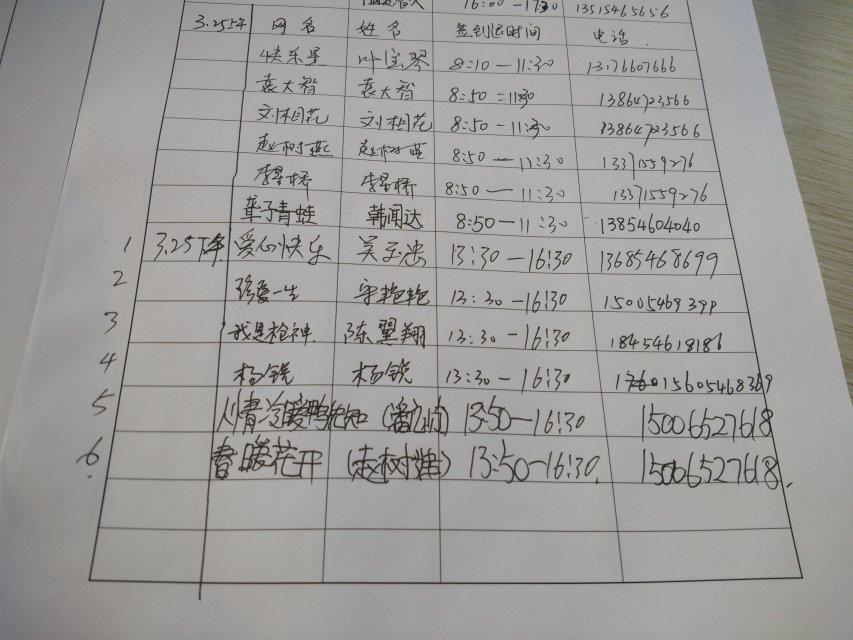 16:00-17:30 13515465656
3.25上午 网名 姓名 签到返时间 电话
快乐星 叶宝琴 8:10-11:30 13176607666
袁大智 袁大智 8:50=11:30 13864723566
刘相花 刘相花 8:50-11:30 13864723566
赵树燕 赵树燕 8:50-11:30 13371559276
8:50-11:30 13371559276
草子青蛙 韩闻达 8:50-11:30 13854604040
1 3.25下午 爱心快乐 吴玉忠 13:30-16:30 13685468699
2 珍爱一生 艳艳 13:30-16:30 15005469399
3 我是枪神 陈翼翔 13:30-16:30 18454618186
4 杨锐 杨锐 13:30-16:30 15605468369
5 人情冷暖鸭先知 13:50-16:30 15006527618
6. 春暖花开 (赵树娟) 13:50-16:30. 15006527618.